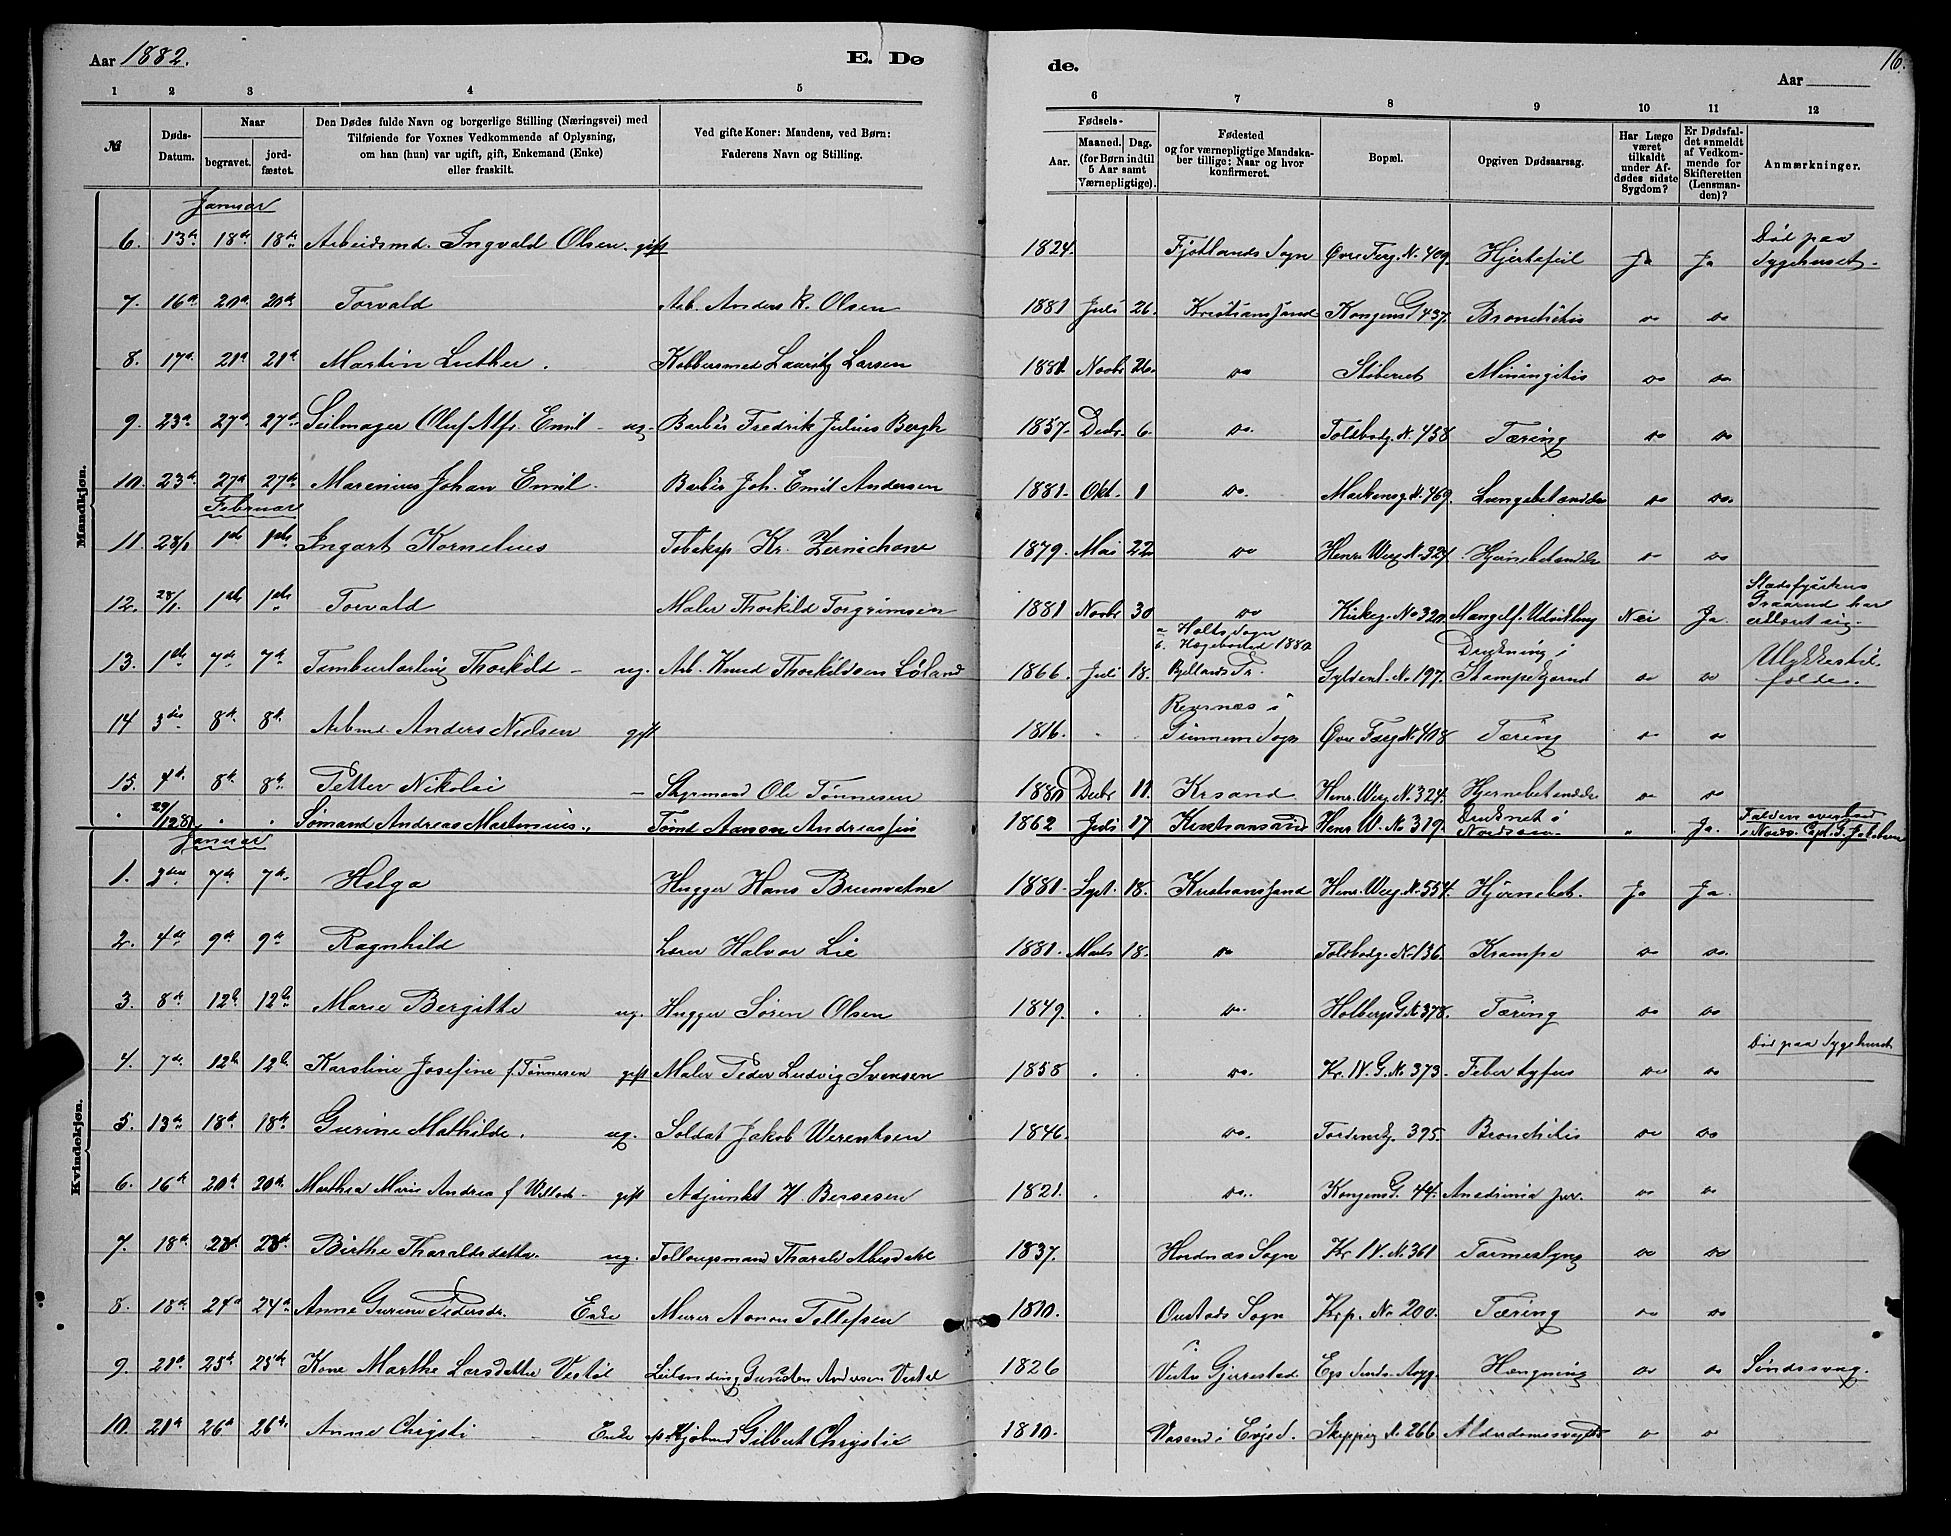 Aar 1882. E. Dø de. Aar 16.
1 2 3 4 5 6 7 8 9 10 11 12
№
Døds-Datum.
Naar
begravet.
jordfæstet.
Den Dødes fulde Navn og borgerlige Stilling (Næringsvei) med
Tilføiende for Voxnes Vedkommende af Oplysning,
om han (hun) var ugift, gift, Enkemand (Enke)
eller fraskilt.
Ved gifte Koner: Mandens, ved Børn:
Faderens Navn og Stilling.
Fødsels-
Aar.
Maaned. Dag.
(for Børn indtil
5 Aar samt
Værnepligtige).
Fødested
og for værnepligtige Mandska-
ber tillige: Naar og hvor
konfirmeret.
Bopæl.
Opgiven Dødsaarsag.
Har Læge
været
tilkaldt
under Af-
dødes sidste
Sygdom?
Er Dødsfal-
det anmeldt
af Vedkom-
mende for
Skifteretten
(Lensman-
den)?
Anmærkninger.
Mandkjøn.
Januar
6. 13de 18de 18de Arbeidsmd. Ingvald Olsen. gift 1824. Fjotlands Sogn Øvre Terg. N. 409. Hjertefeil Ja Ja Død paa Sygehuset.
7. 16d 20d 20d Torvald Arb. Anders K. Olsen 1881 Juli 26. Kristianssand Kongens G 437. Bronchitis do do
8. 17d 21d 21d Martin Luther. Kobbersmed Lauritz Larsen 1881 Novbr 26. do Støberiet Miningitis do do
9. 23d 27d 27d Seilmager Oluf Alfr. Emil - ug. Barbér Fredrik Julius Bergh 1857. Decbr. 6. do. Toldbodg. N. 458 Tæring do do
10. 23d 27d 27d Marenius Johan Emil. Barbér Joh. Emil Andersen 1881. Okt. 1 do. Markensg. N. 469. Lungebetændelse do do.
Februar
11. 28/1 1ste 1ste Ingart Kornelius Kr. Zernichow 1879. Mai 22 do Henr. Werg. N. 324. Hjernebetændelse do do
12. 28/1. 1ste 1ste Torvald Maler Thorkild Torgrimsen 1881 Novbr 30 do Kirkeg. No 320 Mangelf. Udvikling Nei Ja. Stadsfysikus Graarud har
13. 1ste 7de 7de Thorkild - ug. Arb. Knud Thorkildsen Løland 1866. Juli 18. Holts Sogn Hægebostad 1880 Bjellands Pr. Gyldenl. N. 197. Drukning i Stampekjernet do do Ulykkestilfælde.
14 3die 8de 8de Arbmd. Anders Nielsen gift 1816. Øvre Terg. N. 408 Tæring do do
15. 4de 8de 8de Petter Nikolai - Styrmand Ole Tønnesen 1880 Decbr 11. Krsand. Henr. Werg. N. 324. Hjernebetændelse do do
" 29/12 81 " " Sømand Andreas Martinius., Tømd Aanon Andreassen 1862 Juli 17 Kristianssand Henr. W. No 319. Druknet i Nordsøen " Ja. Falden overbord
Kvindekjøn.
Januar
1. 7de 7de Helga Hugger Hans Brunvatne 1881. Sept. 18. Kristianssand Henr. Werg. N. 554. Hjernebet. Ja Ja.
2. 4de 9de 9de Ragnhild Lærer Halvor Lie 1881. Marts 18. do Toldbodg. N. 136. Krampe do do.
3. 8de 12te 12te Marie Bergitte ug. Hugger Søren Olsen 1849. do. Holbergs G. N. 378. Tæring do do
4. 7de 12te 12te Karoline Josefine f. Tønnesen gift Maler Peder Ludvig Svensen 1858 do. Kr. IV. G. No. 373. Feber tyfus do do Død paa Sygehuset
5. 13de 18de 18de Gurine Mathilde. ug. Soldat Jakob Werentsen 1846. do. 395. Bronchitis do do
6. 16de 20de 20de Marthea Marie Andrea f - gift Adjunkt H Bersesen 1821. do. Kongens G. 44. do do
7. 18d 23d 23d Birthe Tharaldsdatter. ug. Tharald 1837. Sogn Kr IV. N. 361 do do
8. 18d 24d 24d Anne Gurine Pedersdr. Enke Murer Aanon Tellefsen 1810. Sogn N. 200. Tæring do do
9 21d 25d 25d Kone Marthe Larsdatter Vestøl Leilending Gunsten Andersen Vestøl 1826 Gjerrestad Hængning do do Sindssvag.
10. 21d 26d 26d Anne Chrysti - Enke Gilbert Chrystie 1810. Evje S. Skipperg. N. 266. do do